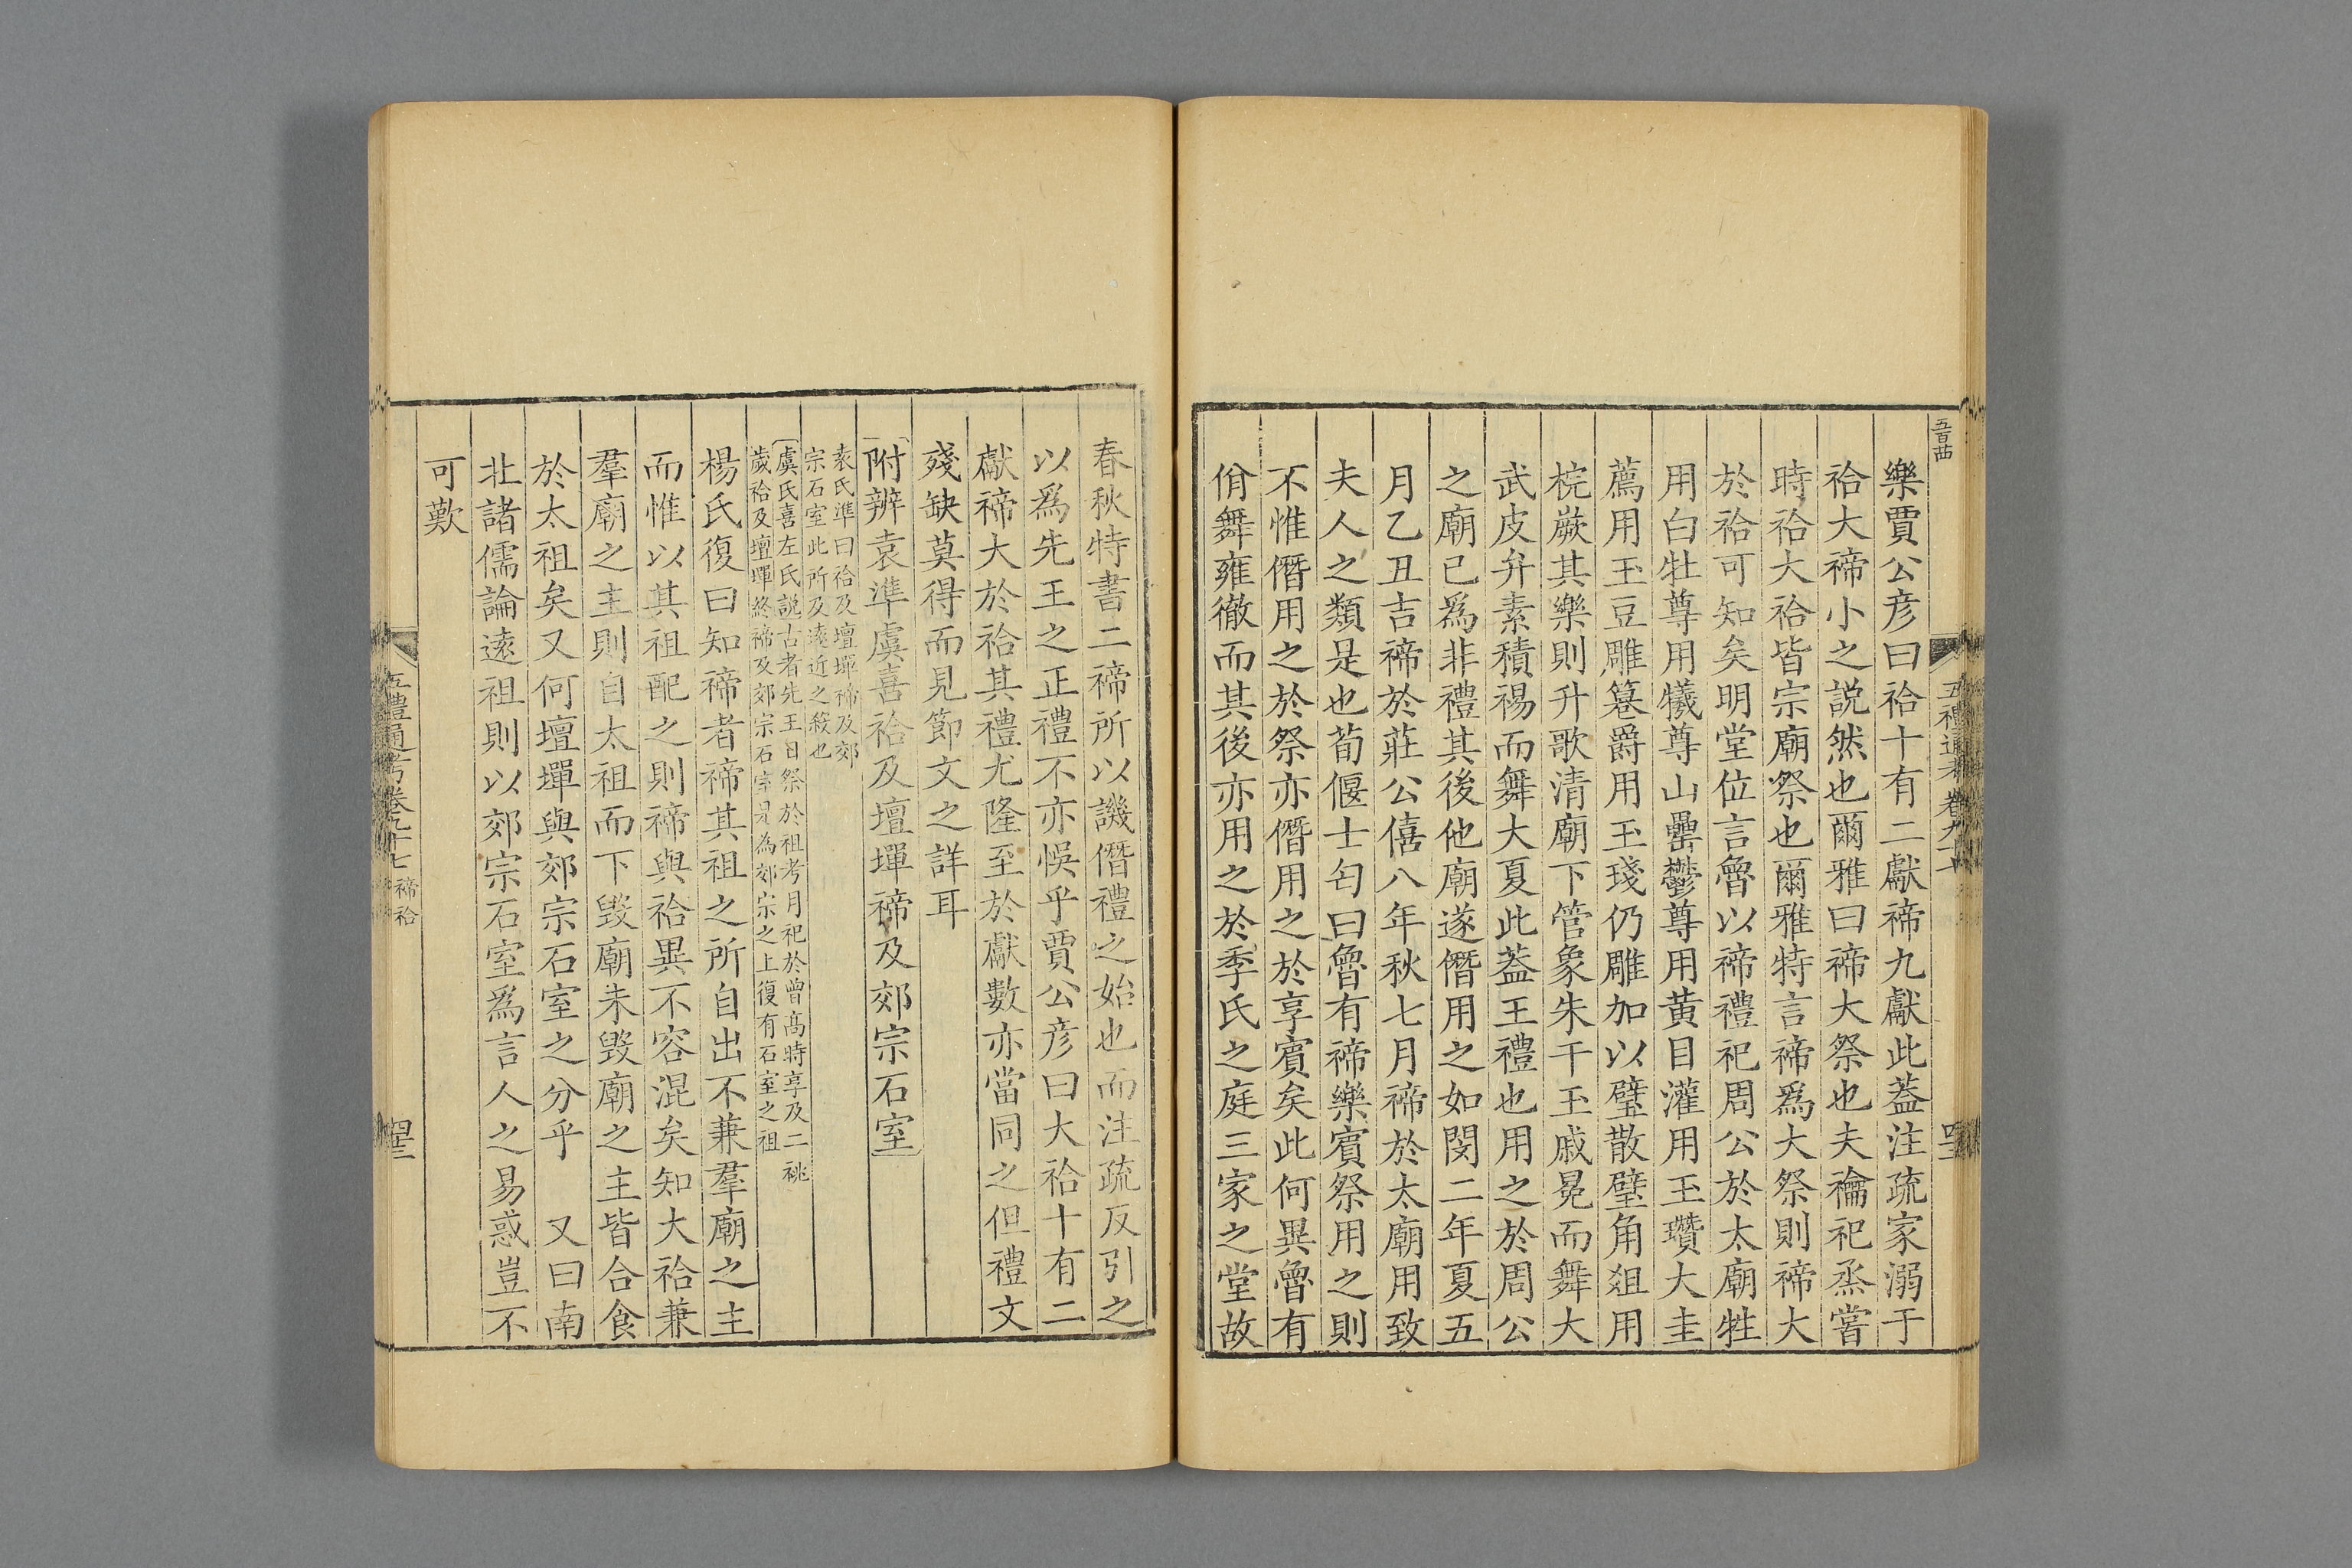 樂賈公彦曰祫十有二獻禘九獻此葢注疏家溺于
祫大禘小之説然也爾雅曰禘大祭也夫禴祀烝嘗
時祫大祫皆宗廟祭也爾雅特言禘爲大祭則禘大
於祫可知矣明堂位言魯以禘禮祀周公於太廟牲
用白牡尊用犧尊山罍鬱尊用黄目灌用玉瓚大圭
薦用玉豆雕簋爵用玉琖仍雕加以璧散璧角俎用
梡蕨其樂則升歌清廟下管象朱干玉戚冕而舞大
武皮弁素積裼而舞大夏此葢王禮也用之於周公
之廟已爲非禮其後他廟遂僭用之如閔二年夏五
月乙丑吉禘於莊公僖八年秋七月禘於太廟用致
夫人之類是也荀偃士匄曰魯有禘樂賓祭用之則
不惟僭用之於祭亦僭用之於享賓矣此何異魯有
佾舞雍徹而其後亦用之於季氏之庭三家之堂故
春秋特書二禘所以譏僭禮之始也而注疏反引之
以爲先王之正禮不亦悞乎賈公彦曰大祫十有二
獻禘大於祫其禮尤隆至於獻數亦當同之但禮文
殘缺莫得而見節文之詳耳
附辨袁準虞喜祫及壇墠禘及郊宗石室
袁氏準曰祫及壇墠禘及郊
宗石室此所及遠近之殺也
虞氏喜左氏説古者先王日祭於祖考月祀於曾髙時享及二祧
歲祫及壇墠終禘及郊宗石室是為郊宗之上復有石室之祖
楊氏復曰知禘者禘其祖之所自出不兼羣廟之主
而惟以其祖配之則禘與祫異不容混矣知大祫兼
羣廟之主則自太祖而下毀廟未毀廟之主皆合食
於太祖矣又何壇墠與郊宗石室之分乎　又曰南
北諸儒論遠祖則以郊宗石室爲言人之易惑豈不
可歎
五禮通考卷九十七 禘祫